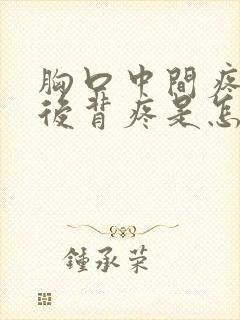 胸口中間疼
後背疼是怎
鍾承荣